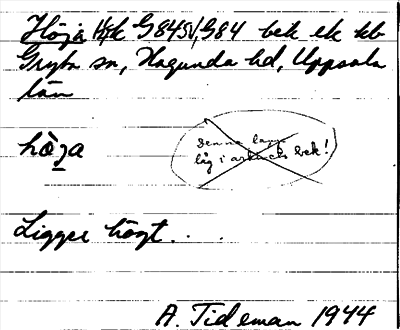 Höja Hfl G84SV, G84 bek ek kb
Gryta sn, Hagunda hd, Uppsala
län
hò̱ja
Denna lapp
låg i art bek!
Ligger högt. . .
A. Tideman 1944